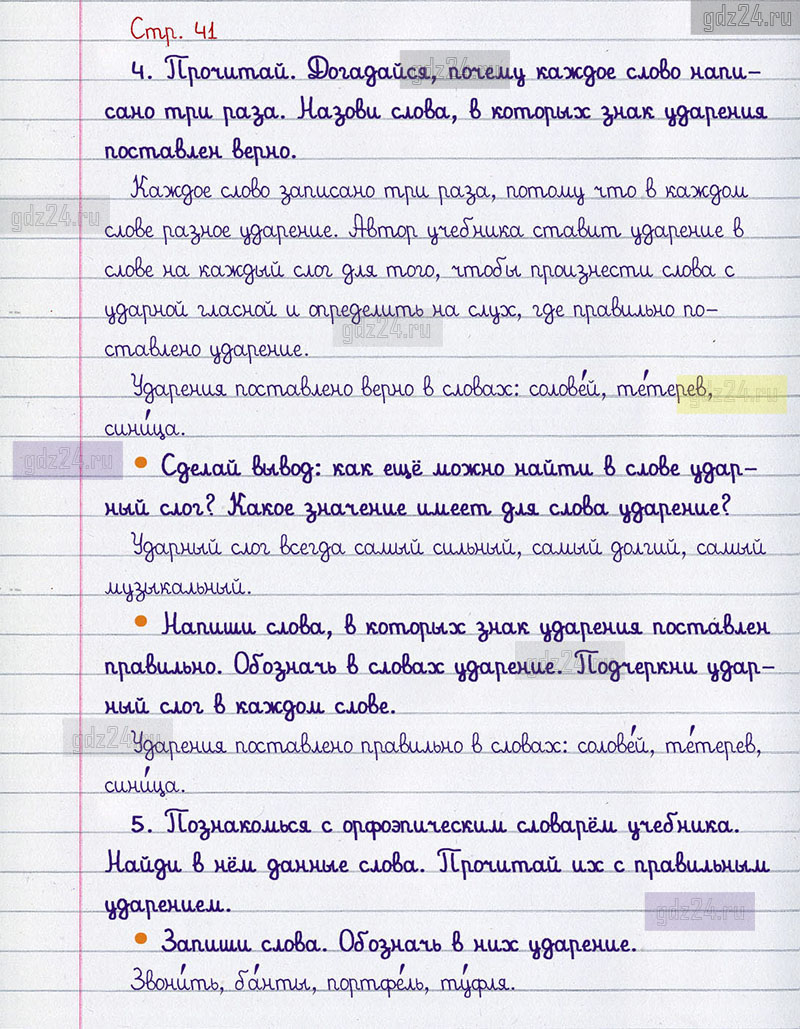 gdz24.ru
Стр. 41
4. Прочитай. Догадайся, почему каждое слово напи-
gdz24.ru
сано три раза. Назови слова, в которых знак ударения
поставлен верно.
Каждое слово записано три раза, потому что в каждом
gdz24.ru
слове разное ударение. Автор учебника ставит ударение в
слове на каждый слог для того, чтобы произнести слова с
ударной гласной и определить на слух, где правильно по-
gdz24.ru
ставлено ударение.
Ударения поставлено верно в словах: солове́й, те́терев,
gdz24.ru
сини́ца.
gdz24.ru
• Сделай вывод: как ещё можно найти в слове удар-
ный слог? Какое значение имеет для слова ударение?
Ударный слог всегда самый сильный, самый долгий, самый
музыкальный.
• Напиши слова, в которых знак ударения поставлен
правильно. Обозначь в словах ударение. Подчеркни удар-
gdz24.ru
ный слог в каждом слове.
gdz24.ru
Ударения поставлено правильно в словах: солове́й, те́терев,
сини́ца.
5. Познакомься с орфоэпическим словарём учебника.
Найди в нём данные слова. Прочитай их с правильным
ударением.
gdz24.ru
• Запиши слова. Обозначь в них ударение.
Звони́ть, ба́нты, портфе́ль, ту́фля.